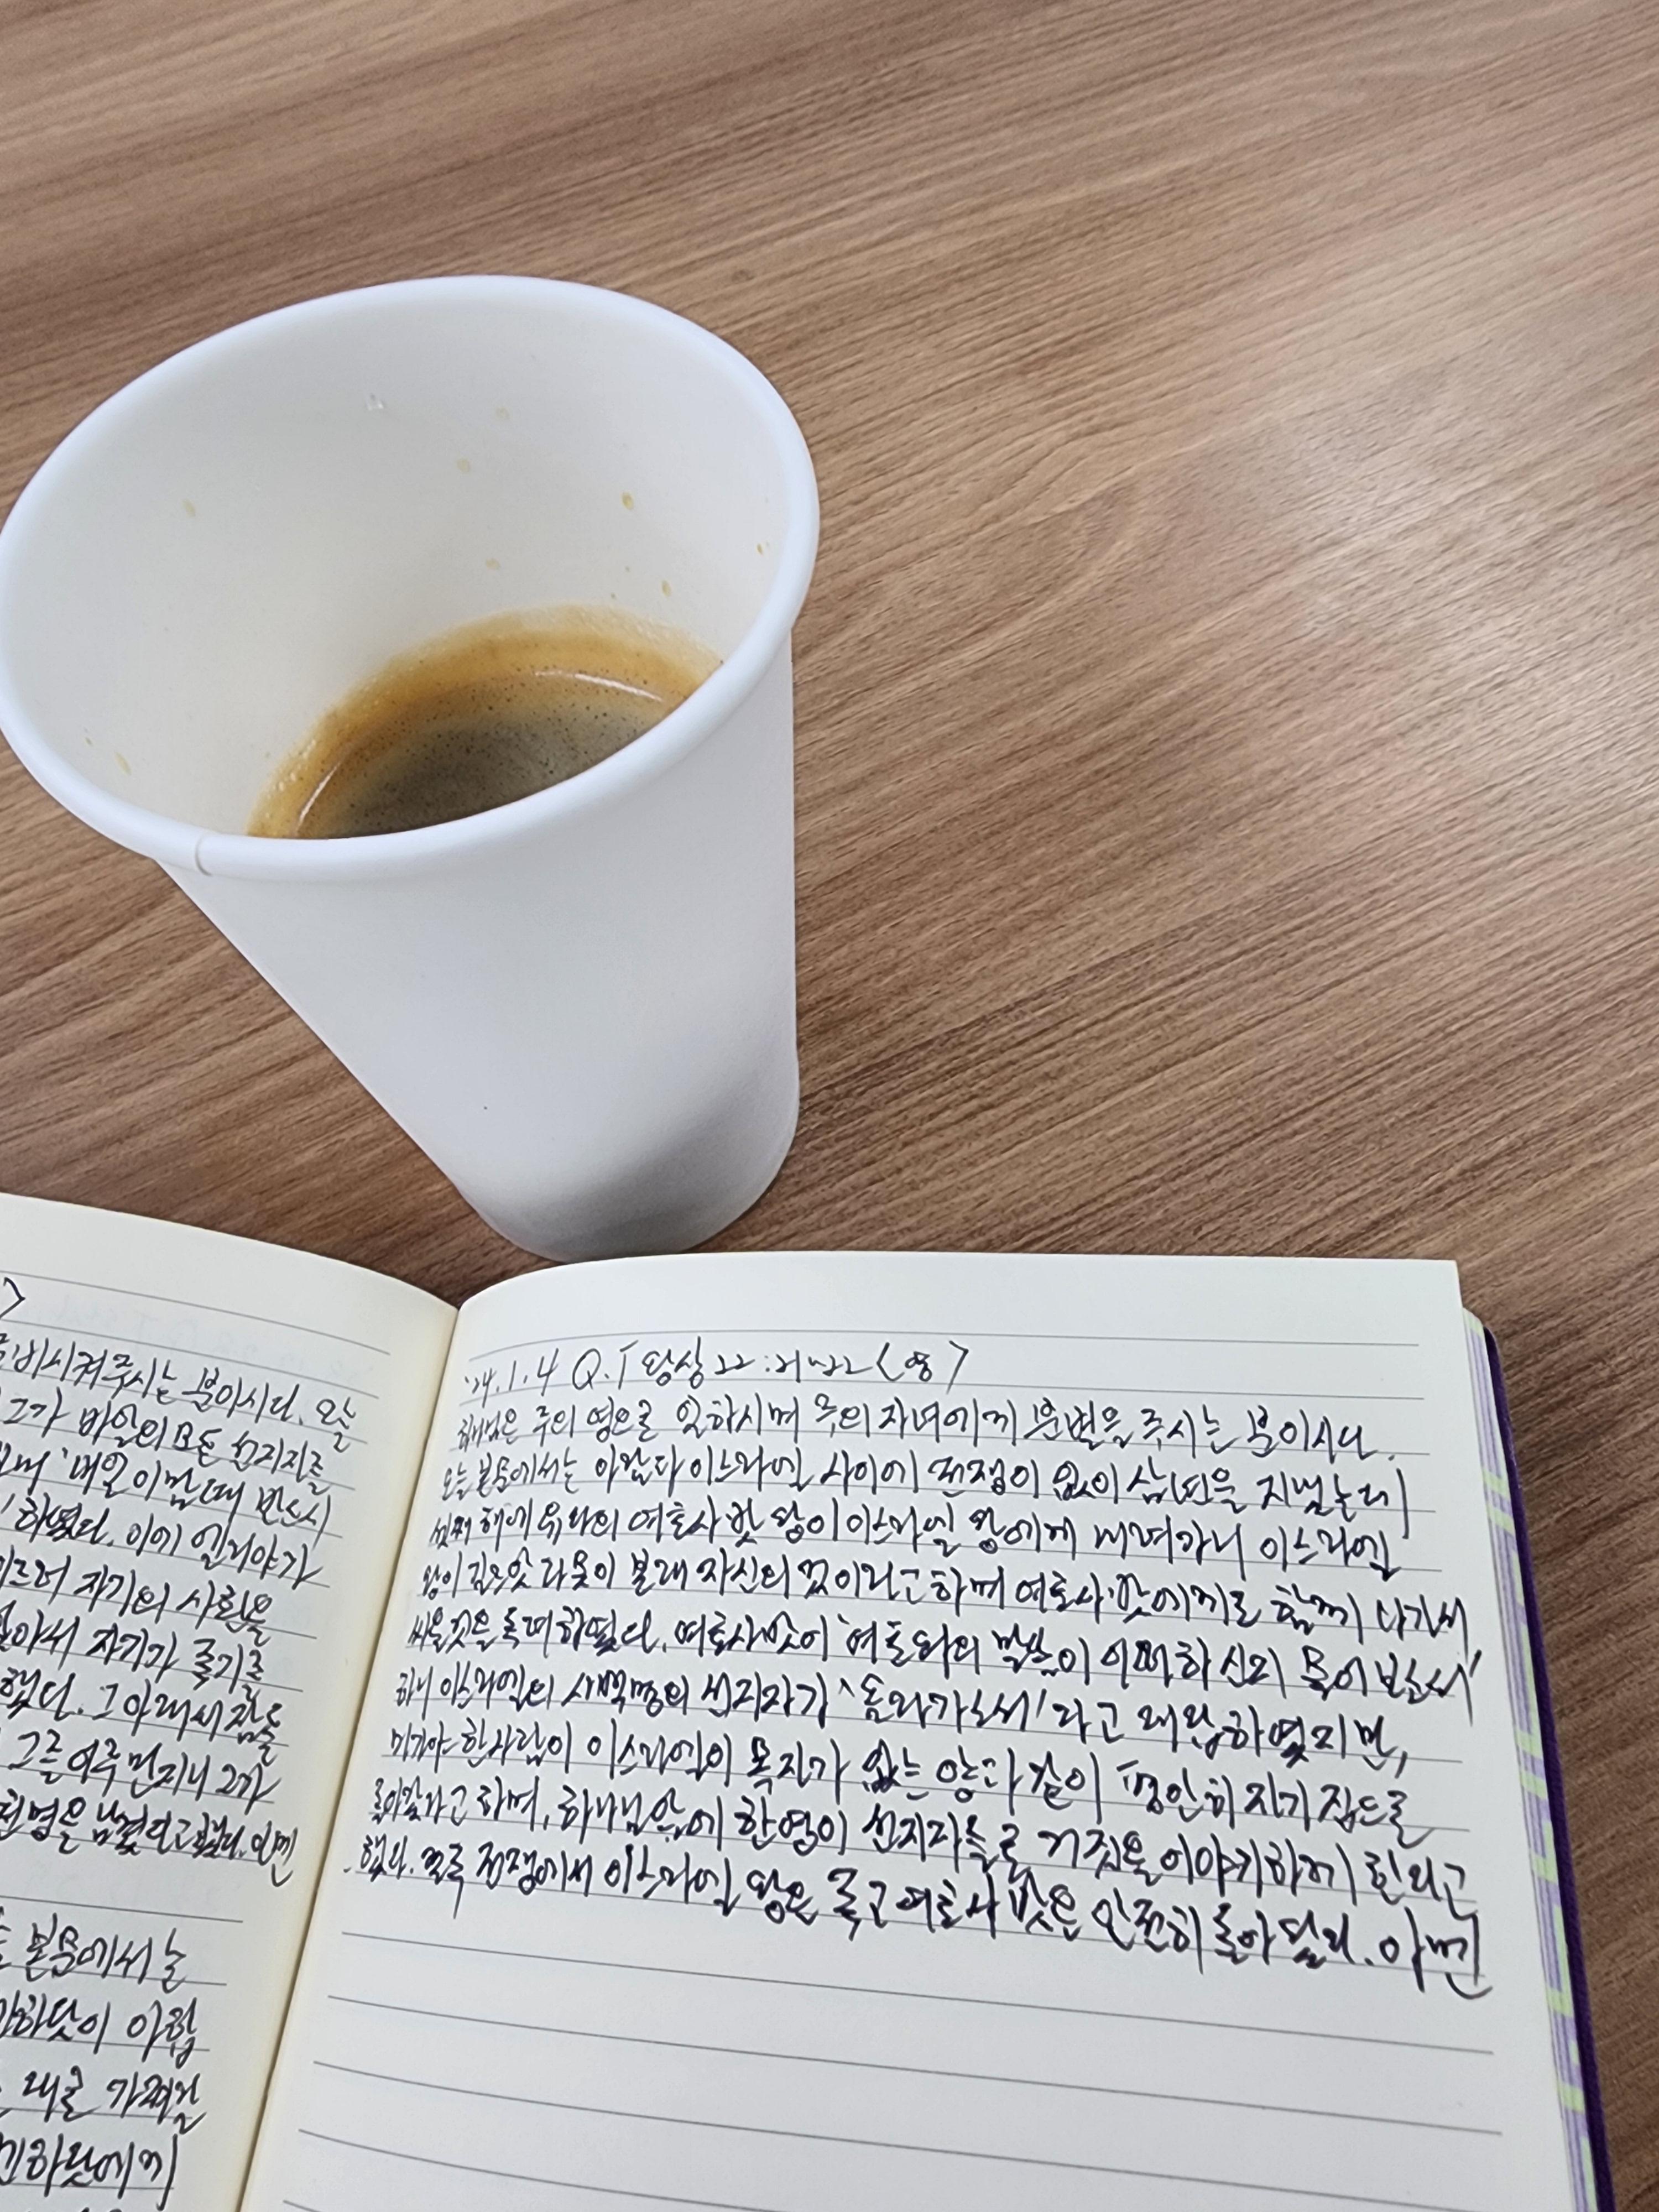 >
비시켜 주시는 분이시다. 오늘
그가 바알의 모든 선지자를
내일 이맘때 반드시
하였다. 이에 엘리야가
이르러 자기의 사환을
앉아서 자기가 죽기를
했다. 그 아래서 잠들
그를 어루만지니 그가
천명을 남겼다고 했다. 아멘
본문에서는
하닷이 아합
하닷에게
'24.1.4 Q.T 왕상 22:21~22 <영>
하나님은 주의 영으로 일하시며 주의 자녀에게 분별을 주시는 분이시다.
오늘 본문에서는 아람과 이스라엘 사이에 전쟁이 없이 삼년을 지냈는데
셋째 해에 유다의 여호사밧 왕이 이스라엘 왕에게 내려가니 이스라엘
왕이 길르앗 라못이 본래 자신의 것이라고 하며 여호사밧에게로 함께 나가서
싸울것을 독려하였다. 여호사밧이 '여호와의 말씀이 어떠하신지 물어 보소서'
하니 이스라엘의 사백명의 선지자가 '올라가소서'라고 대답하였지만,
미가야 한사람이 이스라엘이 목자가 없는 양과 같이 평안히 자기 집으로
돌아갈라고 하며, 하나님 앞에 한 영이 선지자들로 거짓을 이야기하게 한다고
했다. 결국 전쟁에서 이스라엘 왕은 죽고 여호사밧은 안전히 돌아 왔다. 아멘